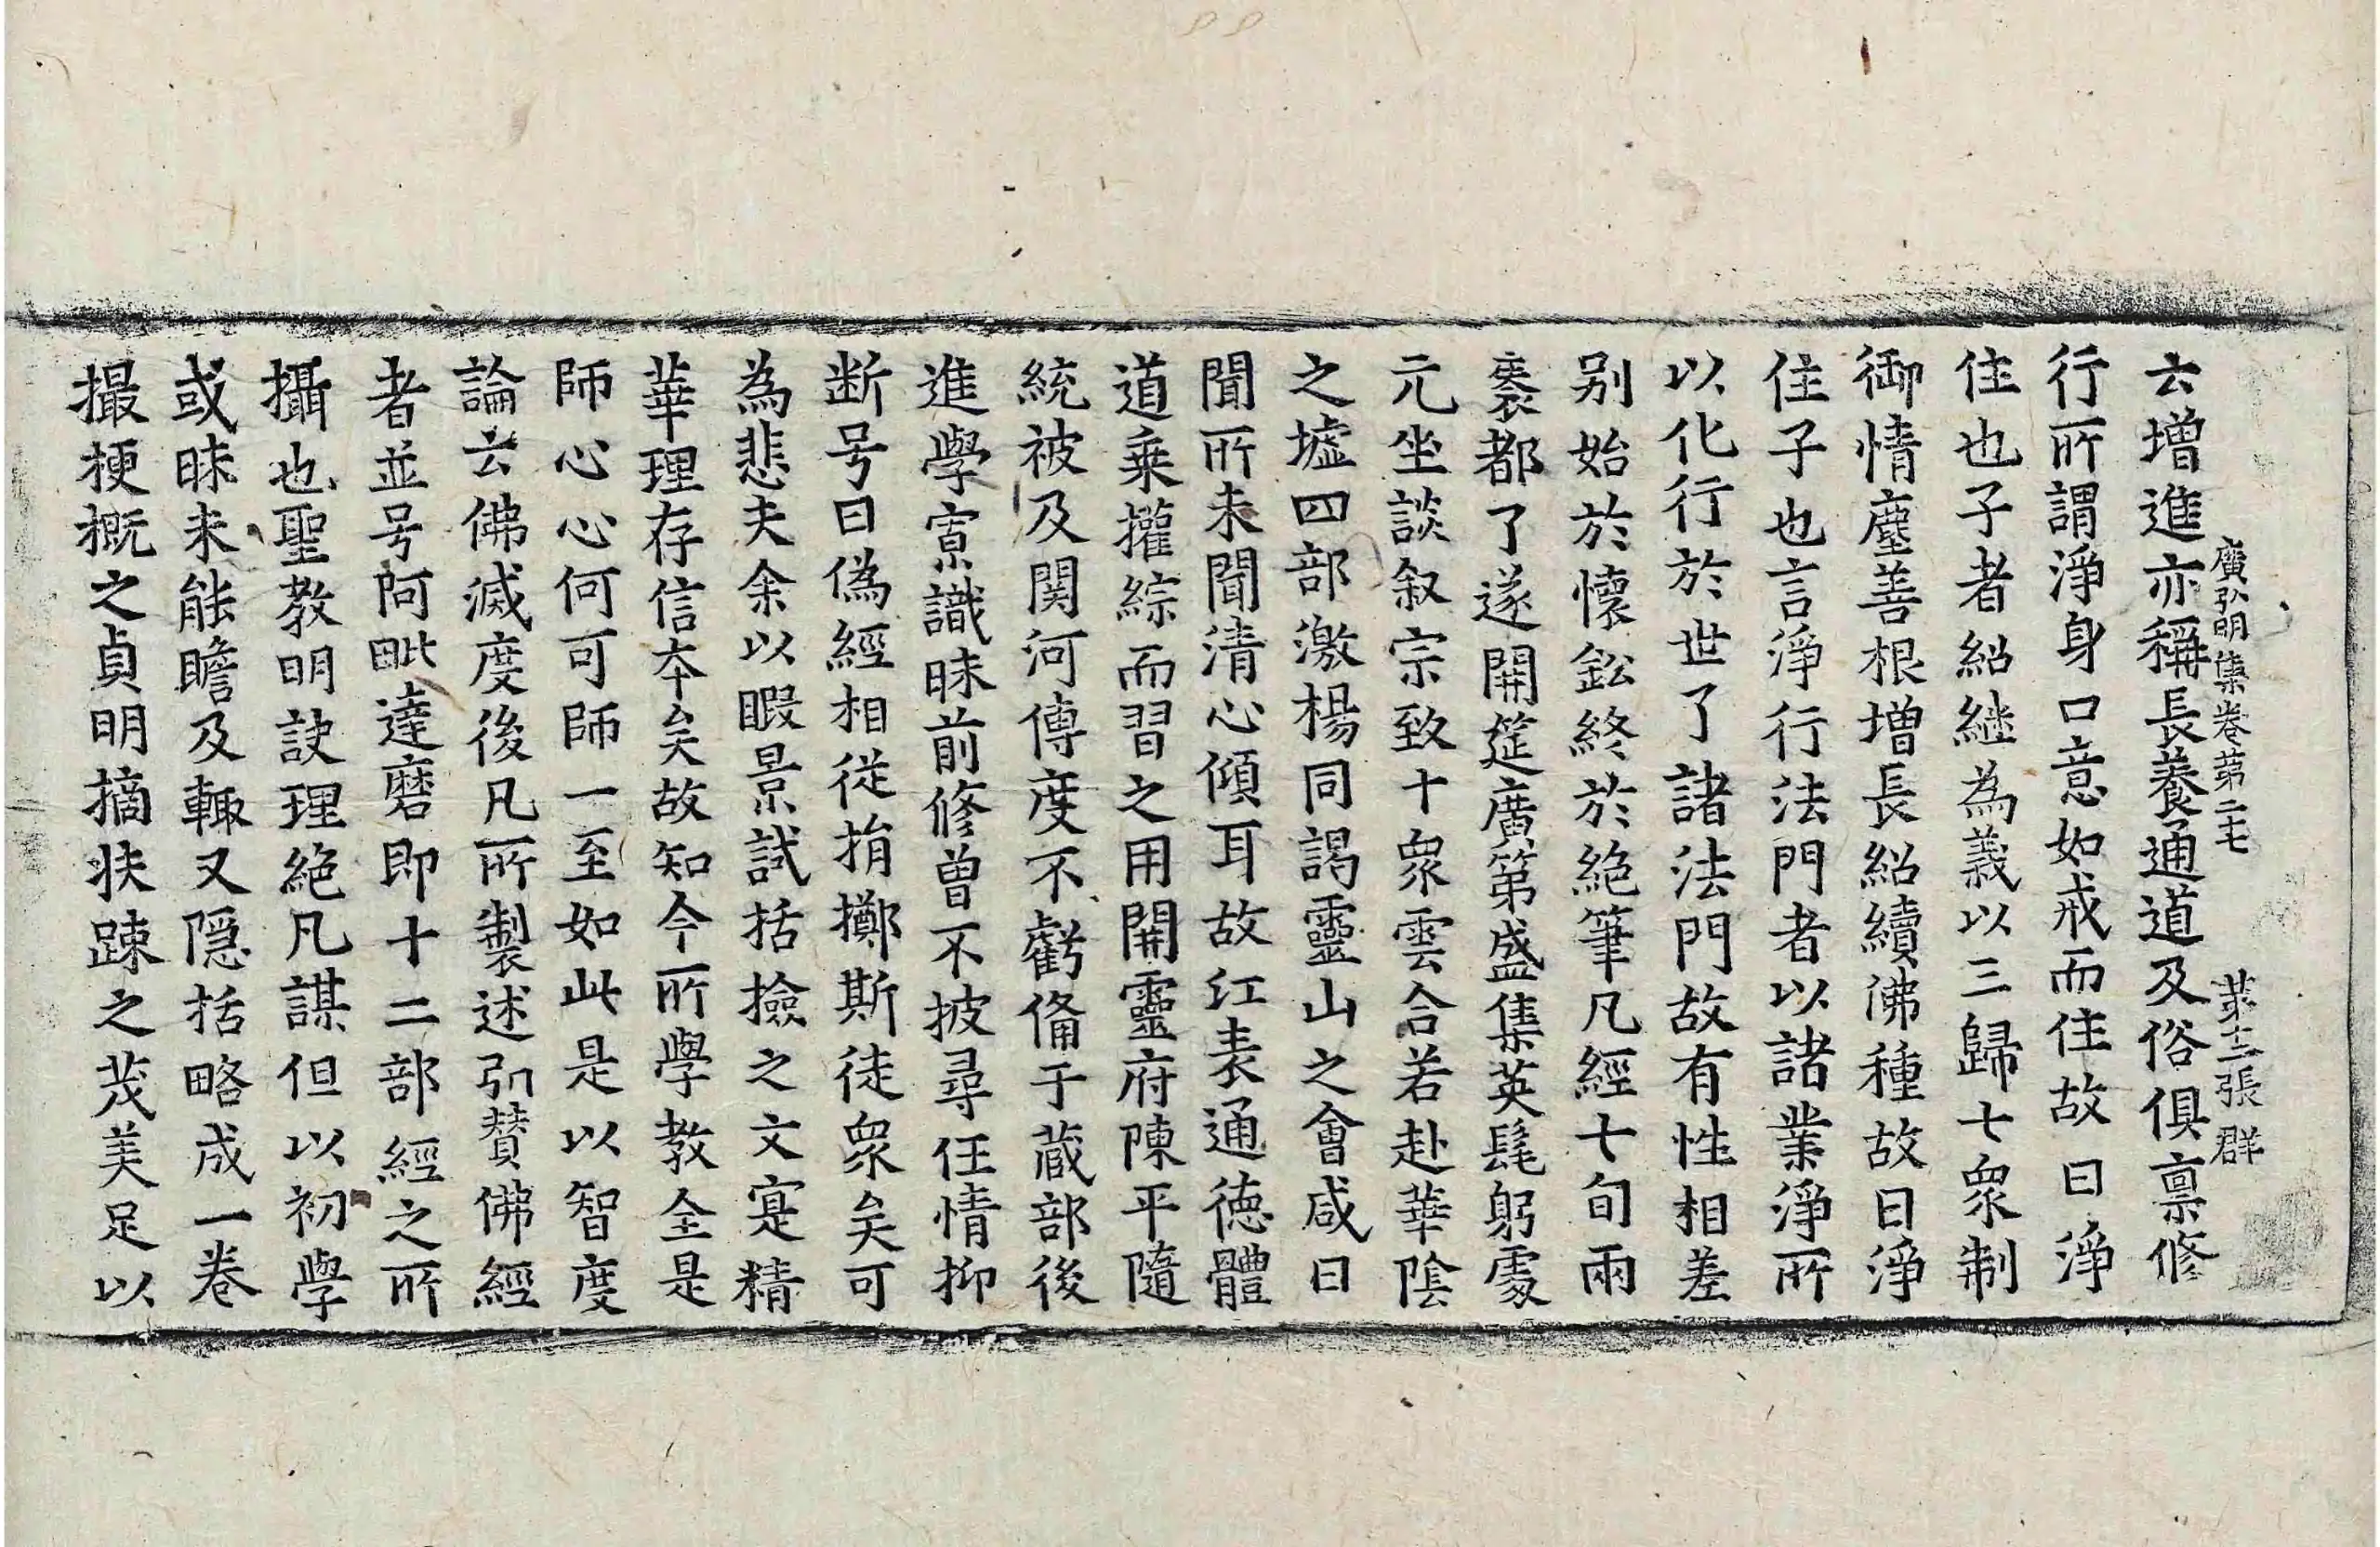 廣弘明集卷第二十七 第十二張 群
云增進亦稱長養通道及俗俱禀修
行所謂淨身口意如戒而住故曰淨
住也子者紹継為義以三歸七衆制
御情塵善根增長紹續佛種故曰淨
住子也言淨行法門者以諸業淨所
以化行於世了諸法門故有性相差
别始於懷鈆終於絶筆凡經十旬兩
袠都了遂開筵廣第盛集英髦躬處
元坐談叙宗致十衆雲合若赴華陰
之墟四部激楊同謁靈山之會咸曰
聞所未聞清心傾耳故江表通德體
道乗攉綜而習之用開靈府陳平隨
統被及関河傳度不虧備于蔵部後
進學寡識昧前修曽不披尋任情抑
断号曰偽經相從捐擲斯徒衆矣可
為悲夫余以暇景試括撿之文寔精
華理存信夲矣故知今所學教全是
師心心何可師一至如此是以智度
論云佛滅度後凡所製述引賛佛經
者並号阿毗達磨即十二部經之所
攝也聖教明訣理絶凡謀但以初學
或昧未能瞻及輙又隠括略成一卷
撮梗概之貞明摘扶踈之茂美足以